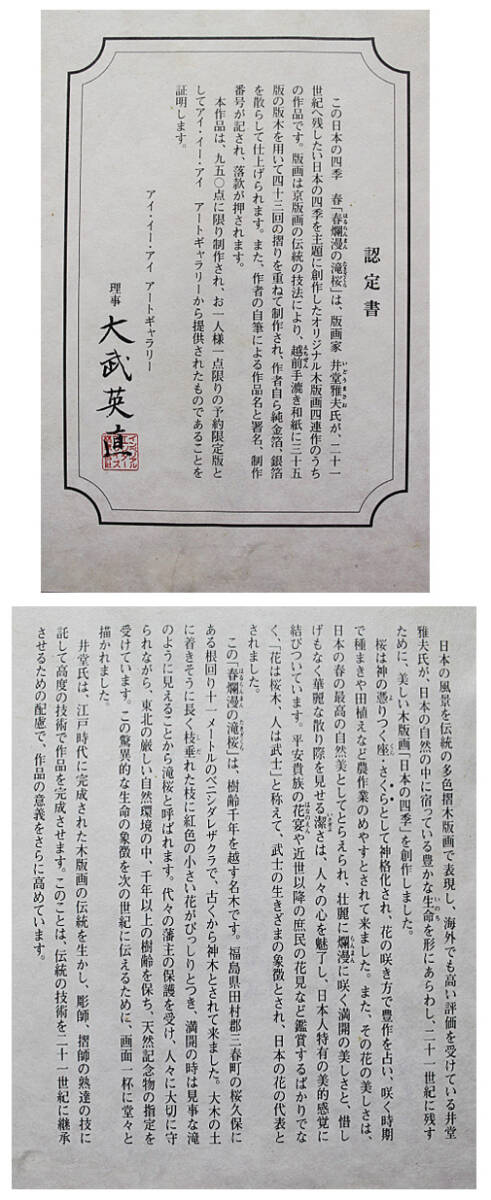 認定書
この日本の四季 春「春爛漫の滝桜」は、版画家 井堂雅夫氏が、二十一
はるらんまん
たきざくら
いどうまさお
世紀へ残したい日本の四季を主題に創作したオリジナル木版画四連作のうち
の作品です。版画は京版画の伝統の技法により、越前手漉き和紙に三十五
えちぜん
版の版木を用いて四十三回の摺りを重ねて制作され、作者自ら純金箔、銀箔
を散らして仕上げられます。また、作者の自筆による作品名と署名、制作
番号が記され、落款が押されます。
本作品は、九五〇点に限り制作され、お一人様一点限りの予約限定版と
してアイ・イー・アイ アートギャラリーから提供されたものであることを
証明します。
アイ・イー・アイ アートギャラリー
理事 大武英直
日本の風景を伝統の多色摺木版画で表現し、海外でも高い評価を受けている井堂
雅夫氏が、日本の自然の中に宿っている豊かな生命を形にあらわし、二十一世紀に残す
いのち
ために、美しい木版画「日本の四季」を創作しました。
桜は神の憑りつく座・さく・らとして神格化され、花の咲き方で豊作を占い、咲く時期
くら
で種まきや田植えなど農作業のめやすとされて来ました。また、その花の美しさは、
日本の春の最高の自然美としてとらえられ、壮麗に爛漫に咲く満開の美しさと、惜し
らんまん
げもなく華麗な散り際を見せる潔さは、人々の心を魅了し、日本人特有の美的感覚に
いさぎよ
結びついています。平安貴族の花宴や近世以降の庶民の花見など鑑賞するばかりでな
はなのえん
く、「花は桜木、人は武士」と称えて、武士の生きざまの象徴とされ、日本の花の代表と
されました。
この「春爛漫の滝桜」は、樹齢千年を越す名木です。福島県田村郡三春町の桜久保に
はるらんまん
たきざくら
ある根回り十一メートルのベニシダレザクラで、古くから神木とされて来ました。大木の土
に着きそうに長く枝垂れた枝に紅色の小さい花がびっしりとつき、満開の時は見事な滝
しだ
のように見えることから滝桜と呼ばれます。代々の藩主の保護を受け、人々に大切に守
られながら、東北の厳しい自然環境の中、千年以上の樹齢を保ち、天然記念物の指定を
受けています。この驚異的な生命の象徴を次の世紀に伝えるために、画面一杯に堂々と
描かれました。
井堂氏は、江戸時代に完成された木版画の伝統を生かし、彫師、摺師の熟達の技に
託して高度の技術で作品を完成させます。このことは、伝統の技術を二十一世紀に継承
させるための配慮で、作品の意義をさらに高めています。